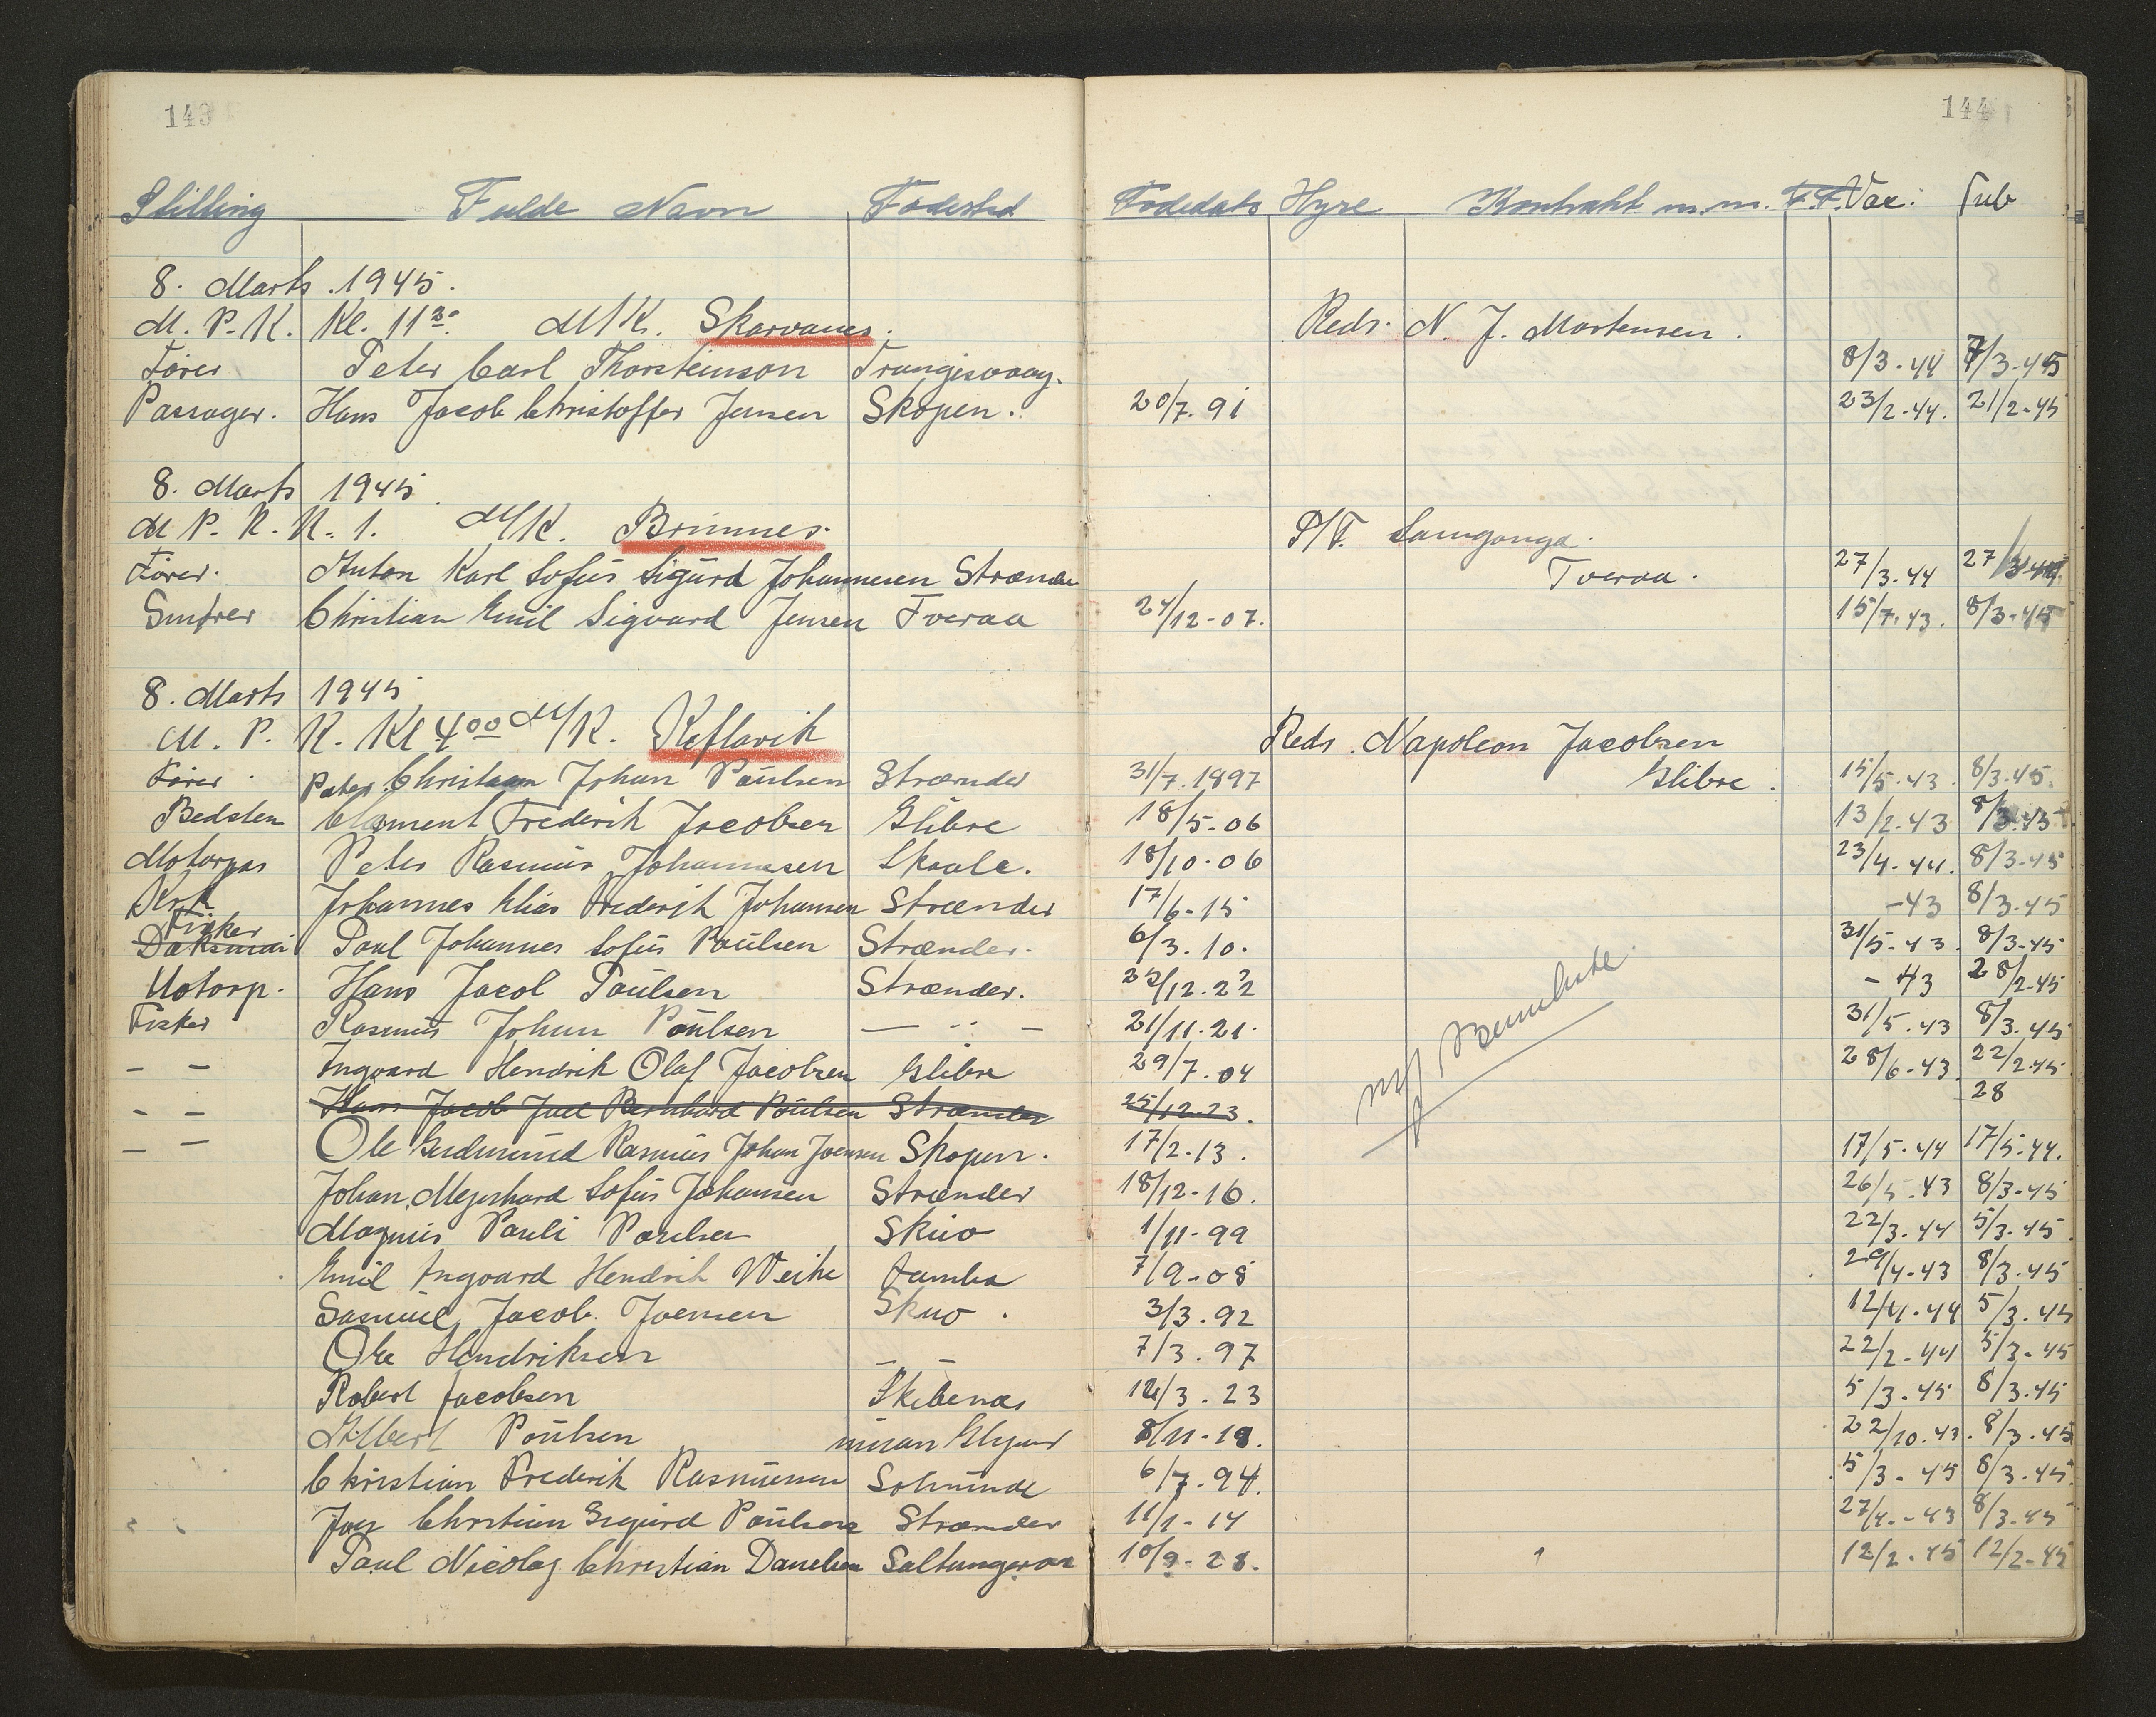 143
144
Stilling Fulde Navn Fødested Fødedato Hyre Kontrakt m.m. F.F. Vac. Tub
8. Marts 1945.
M. P. K. Kl. 11 30. M/K. Skarvanes. Reds. N. J. Mortensen.
Fører Peter Carl Thorsteinson Trangisvaag. 8/3-44 7/3-45
Passager. Hans Jacob Christoffer Jensen Skopen. 20/7. 91 23/2-44. 21/2-45
8. Marts 1945
M. P. K. K. 1. M/K. Brimnes. P/F. Samganga.
Tveraa.
Fører. Anton Karl Sofus Sigurd Johannesen Strænder 27/3.44 27/3
Smører Christian Emil Sigvard Jensen Tveraa 24/12-07. 15/7.43. 8/3-45
8. Marts 1945
M. P. K. Kl 4 00 M/K. Keflavik Reds. Napoleon Jacobsen
Glibre.
Fører Peter Christian Johan Poulsen Strænder 31/7.1897 15/5.43. 8/3-45.
Bedstem Clement Frederik Jacobsen Glibre 18/5-06 13/2-43 8/3-45
Motorpas Peter Rasmus Johannesen Skaale. 18/10-06 23/4-44. 8/3-45
Kok Johannes Elias Frederik Johansen Strænder 17/6-15 -43 8/3-45
Fisker
Dæksmd Poul Johannes Sofus Poulsen Strænder. 6/3. 10. 31/5-43. 8/3-45
Motorp. Hans Jacob Poulsen Strænder. 22/12.22 - 43 28/2-45
Fisker Rasmus Johan Poulsen — " — 21/11.21. 31/5.43 8/3.45
— — Ingvard Hendrik Olaf Jacobsen Glibre 29/7.04 28/6-43. 22/2-45
— — Hans Jacob Juel Bernhard Poulsen Strænder 25/12.23. 28
— — Ole Gudmund Rasmus Johan Joensen Skopun. 17/2.13. 17/5.44 17/5.44.
Johan Mejerhard Sofus Johansen Strænder 18/12-16. 26/5.43 8/3-45
Magnus Pauli Poulsen Skuo 1/11-99 22/3.44 5/3.45.
Emil Ingvard Hendrik Weihe Famba 7/9-08 29/4-43 8/3.45
Samuel Jacob Joensen Skuo. 3/3.92 12/4.44 5/3.45
Ole Hendriksen — — 7/3.97 22/2-44 5/3-45
Robert Jacobsen Skibenæs 12/3.23 5/3.45 8/3.45
Albert Poulsen Glyvur 8/11-18. 22/10.43. 8/3.45
Christian Frederik Rasmussen Solmunde 6/7.94. 5/3-45 8/3.45.
Joen Christian Sigurd Poulsen Strænder 11/1-14 27/4.-43 8/3.45
Poul Nicolaj Christian Danielsen Saltangeraa 10/9-28. 12/2.45 12/2-45